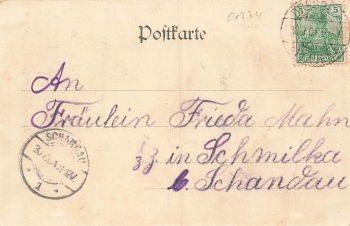 Postkarte
An
Fräulein Frieda Mahn
zz in Schmilka
b. Schandau
SCHANDAU
1
5